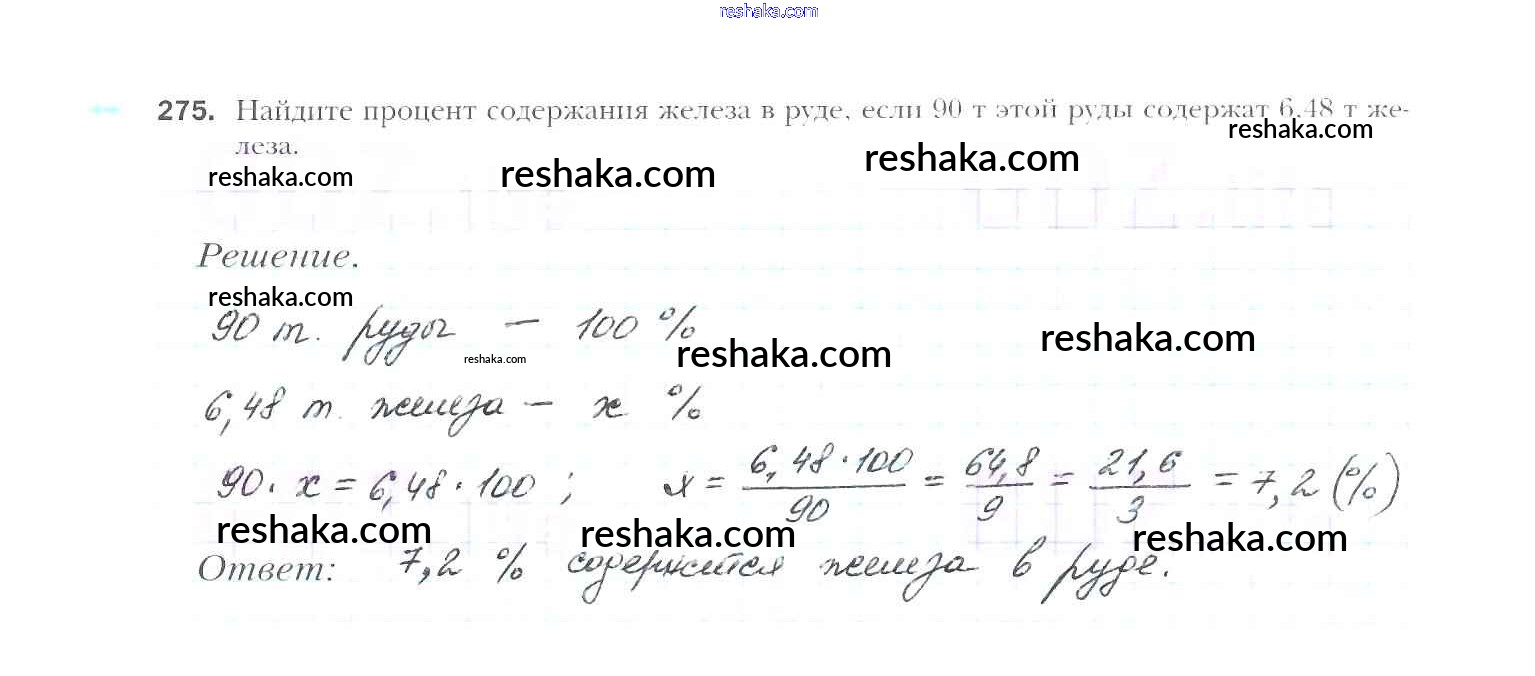 reshaka.com
275. Найдите процент содержания железа в руде, если 90 т этой руды содержат 6,48 т же-
reshaka.com
леза.
reshaka.com reshaka.com reshaka.com
Решение.
reshaka.com
90 т. руды — 100 %
reshaka.com reshaka.com reshaka.com
6,48 т. железа — х %
90 · х = 6,48 · 100 ; х = 6,48 · 100 / 90 = 64,8 / 9 = 21,6 / 3 = 7,2 (%)
reshaka.com reshaka.com reshaka.com
Ответ: 7,2 % содержится железа в руде.